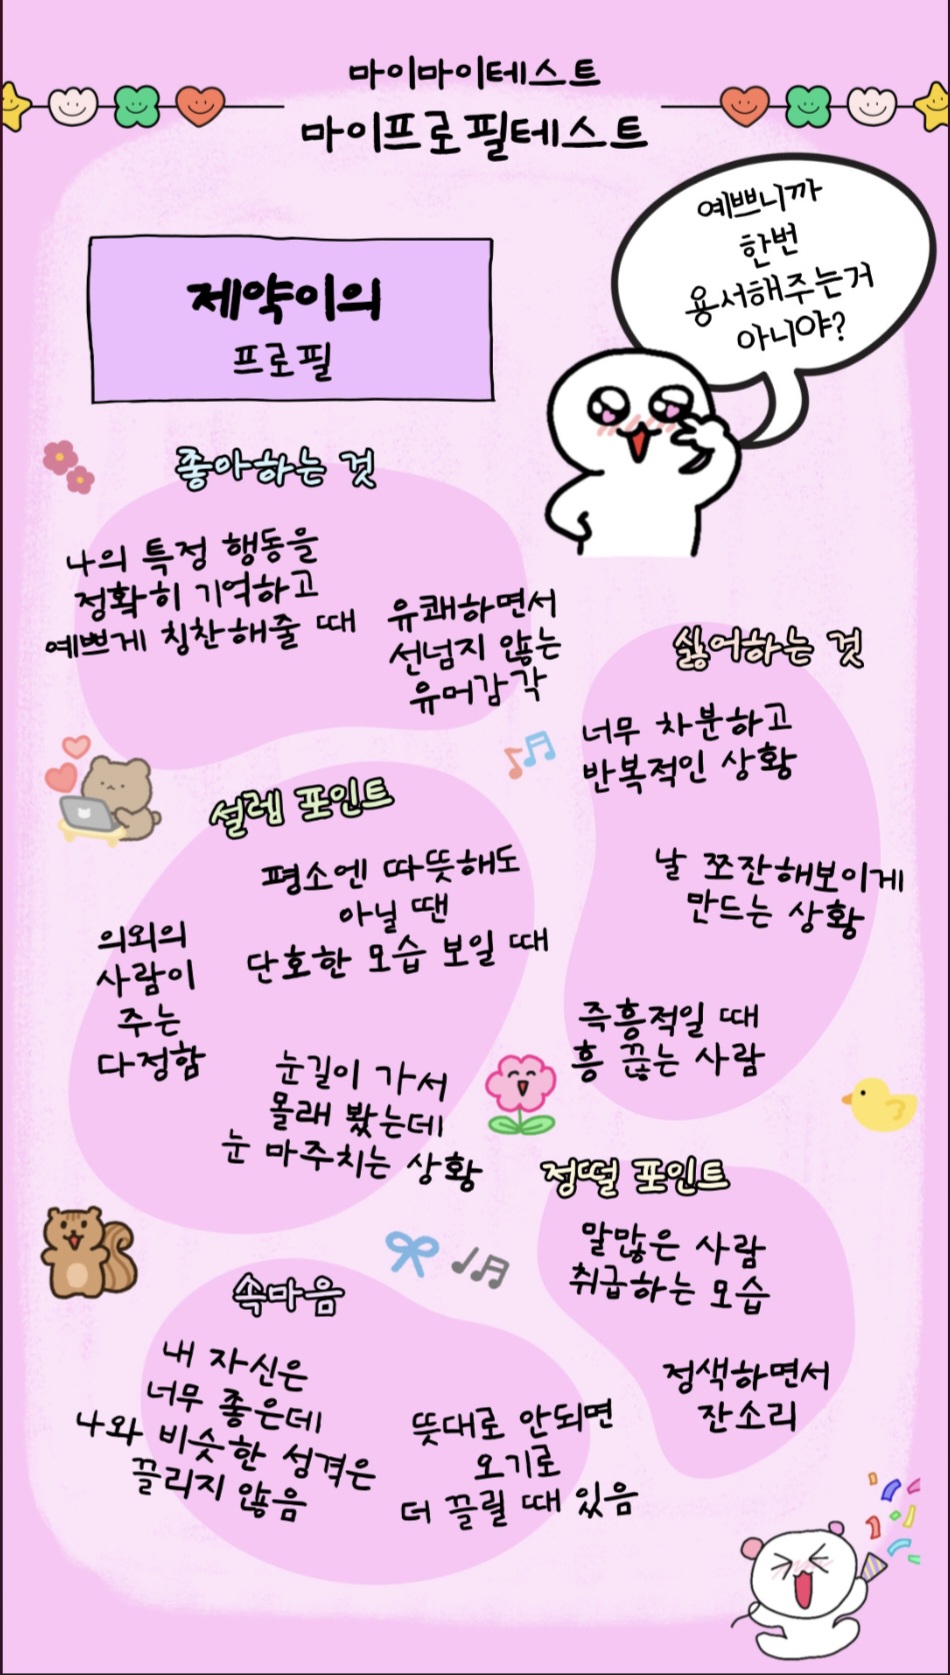 마이마이테스트
마이프로필테스트
예쁘니까
한번
용서해주는거
아니야?
제약이의
프로필
좋아하는 것
나의 특정 행동을
정확히 기억하고
예쁘게 칭찬해줄 때
유쾌하면서
선넘지 않는
유머감각
싫어하는 것
너무 차분하고
반복적인 상황
날 쪼잔해보이게
만드는 상황
즉흥적일 때
흥 끊는 사람
설렘 포인트
평소엔 따뜻해도
아닐 땐
단호한 모습 보일 때
의외의
사람이
주는
다정함
눈길이 가서
몰래 봤는데
눈 마주치는 상황
정떨 포인트
말많은 사람
취급하는 모습
정색하면서
잔소리
속마음
내 자신은
너무 좋은데
나와 비슷한 성격은
끌리지 않음
뜻대로 안되면
오기로
더 끌릴 때 있음